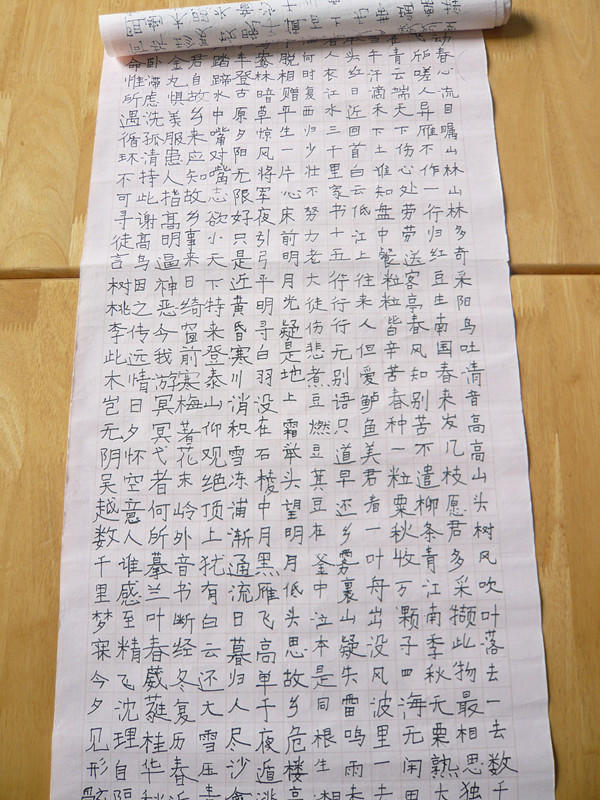 春心流目瞩山林山林多奇采阳鸟吐清音高高山头树风吹叶落去一去数千
所嗟人异雁不作一行归红豆生南国春来发几枝愿君多采撷此物最相思独
青云端天下伤心处劳劳送客亭春风知别苦不遣柳条青江南季秋天栗熟大
午汗滴禾下土谁知盘中餐粒粒皆辛苦春种一粒粟秋收万颗子四海无闲田
头红日近回首白云低江上往来人但爱鲈鱼美君看一叶舟出没风波里一去
人衣江水三千里家书十五行行行无别语只道早还乡雾裹山疑失雷鸣雨未
何时复西归少壮不努力老大徒伤悲煮豆燃豆萁豆在釜中泣本是同根生相
脱相赠平生一片心床前明月光疑是地上霜举头望明月低头思故乡危楼高
林暗草惊风将军夜引弓平明寻白羽没在石棱中月黑雁飞高单于夜遁逃
车登古原夕阳无限好只是近黄昏寒川消积雪冻浦渐通流日暮归人尽沙禽
踏蹄水中嘴对嘴志欲小天下特来登泰山仰观绝顶上犹有白云还大雪压
君自故乡来应知故乡事来日绮窗前寒梅著花未岭外音书断经冬复历春近
金丸惧美服患人指高明逼神恶今我游冥冥弋者何所慕兰叶春葳蕤桂华秋
卧滞虑洗孤清持此谢高鸟因之传远情日夕怀空意人谁感至精飞沈理自隔
命惟所遇循环不可寻徒言树桃李此木岂无阴吴越数千里梦寐今夕见形骸